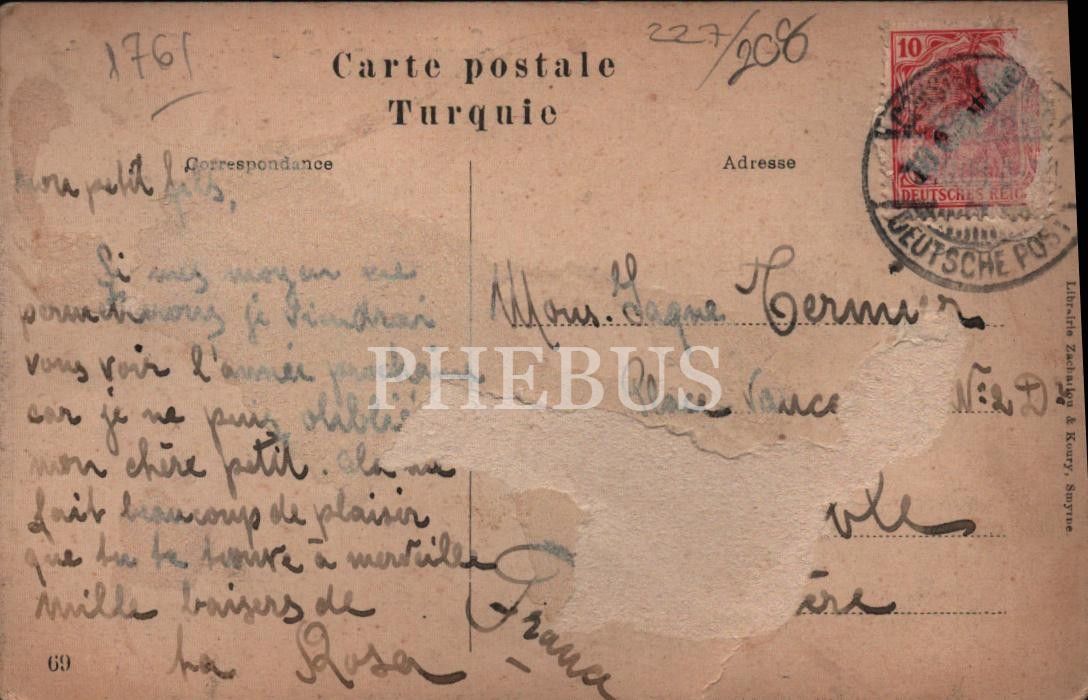 1761
227/208
Carte postale
Turquie
Correspondance
Adresse
10
DEUTSCHES REICH
DEUTSCHE POST
mon petit fils,
Si mes moyen me
permettrons je viendrai
vous voir l'année prochaine
car je ne puis oublié
mon chère petit. Cela me
fait beaucoup de plaisir
que tu te trouve à merveille
mille baisers de
ta Rosa
Mons. Jaque Termier
Place Vauce N:2 D
ère
France
PHEBUS
Librairie Zachariou & Koury, Smyrne
69